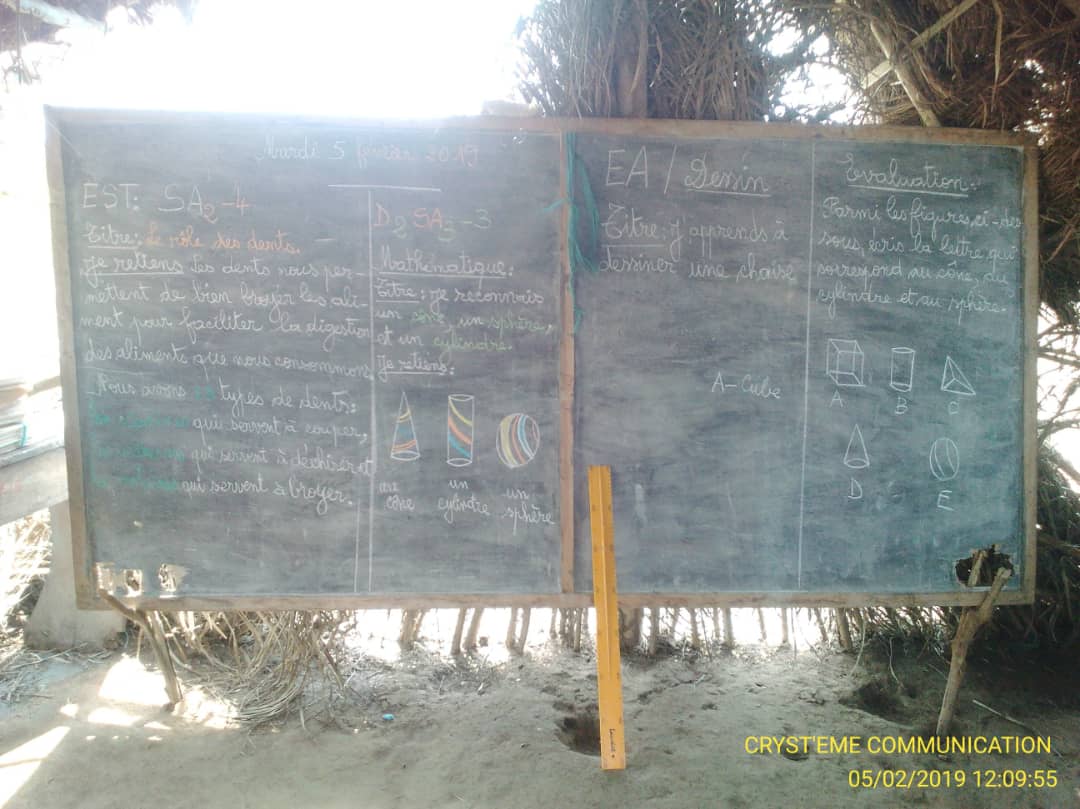 Mardi 5 février 2019
EST: SA2-4
Titre: Le rôle des dents.
Je retiens Les dents nous per-
mettent de bien broyer les ali-
ment pour faciliter la digestion
des aliments que nous consommons
Nous avons types de dents:
qui servent à couper,
qui servent à déchirer et
qui servent à broyer.
D2 SA3-3
Mathématique:
Titre: je reconnais
un cône, un sphère,
et un cylindre.
Je retiens:
un
cône
un
cylindre
un
sphère
EA / Dessin
Titre: J'apprends à
dessiner une chaise
A-Cube
Evaluation:
Parmi les figures ci-des
sous, écris la lettre qui
correspond au cône, du
cylindre et au sphère.
A
B
C
D
E
CRYST'EME COMMUNICATION
05/02/2019 12:09:55